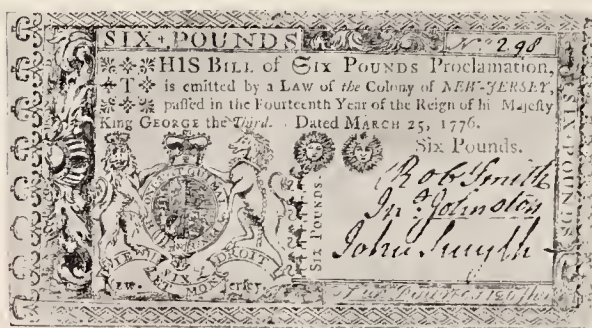 SIX POUNDS No. 298
THIS BILL of Six Pounds Proclamation,
is emitted by a Law of the Colony of NEW-JERSEY,
passed in the Fourteenth Year of the Reign of hi Majesty
King GEORGE the Third. Dated MARCH 25, 1776.
Six Pounds.
Rob Smith
Jno Johnston
John Smyth
SIX POUNDS
SIX POUNDS
HONI SOIT QUI MAL Y PENSE
DIEU ET MON DROIT
SIX £
New Jersey